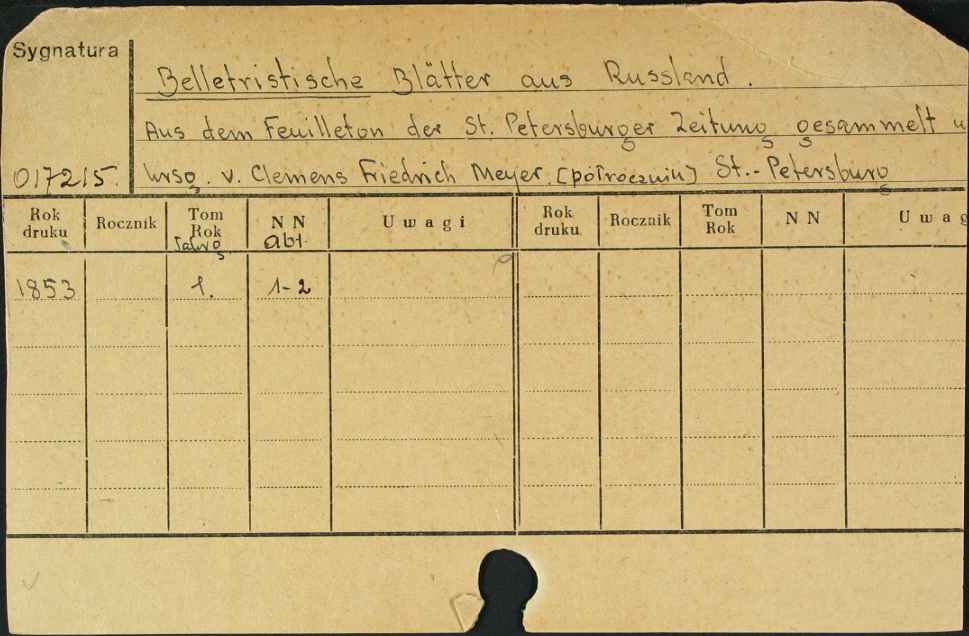 Sygnatura
Belletristische Blätter aus Russland.
Aus dem Feuilleton der St. Petersburger Zeitung gesammelt u
017215. hrsg. v. Clemens Friedrich Meyer. [półrocznik] St.-Petersburg
Rok druku Rocznik Tom Rok Jahrg NN Abt. Uwagi Rok druku Rocznik Tom Rok NN Uwag
1853 1. 1-2